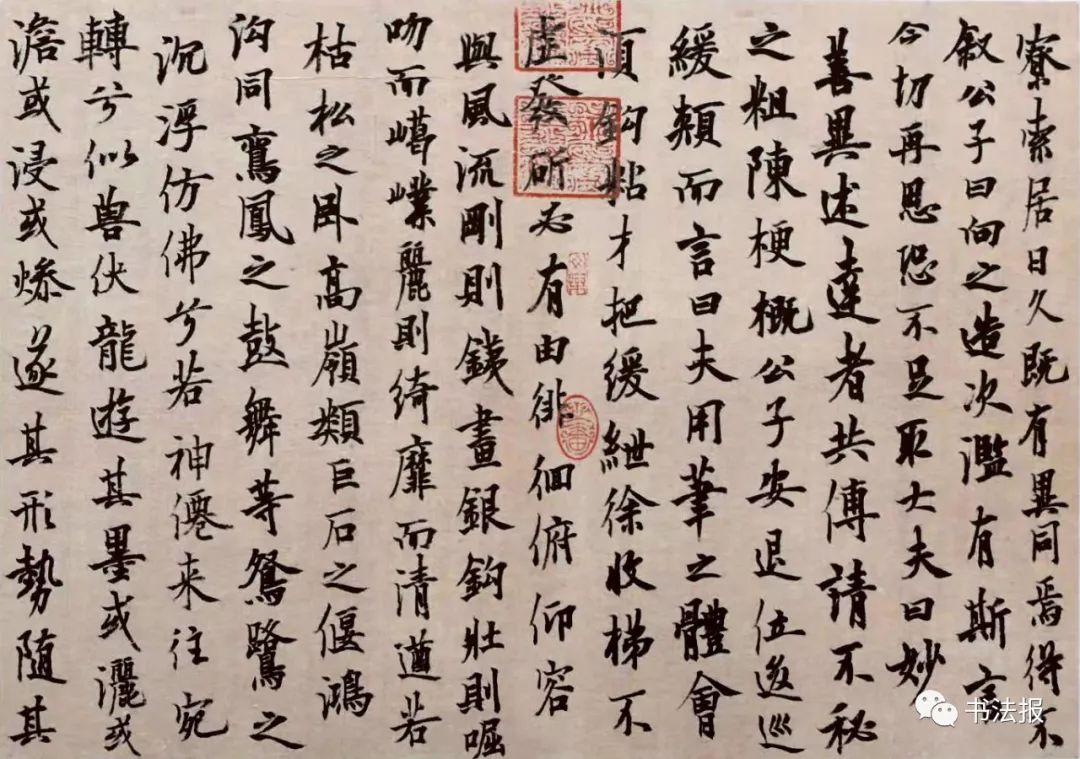 寮索居日久既有異同焉得不
叙公子曰向之造次濫有斯言
今切再思恐不足取大夫曰妙
善異述達者共傅請不秘
之粗陳梗概公子安退位逡巡
緩類而言曰夫用筆之體會
須鈎粘才把緩紲徐收梯不
虛發斫必有由徘徊俯仰容
與風流剛則銕畫銀鈎壯則啒
吻而嶱嶫麗則綺靡而清遒若
枯松之卧高嶺類巨石之偃鴻
沟同鸞鳳之鼓舞等鴛鷺之
沉浮仿佛兮若神僊来往宛
轉兮似兽伏龍遊其墨或灑或
澹或浸或燥遂其形勢隨其
书法报